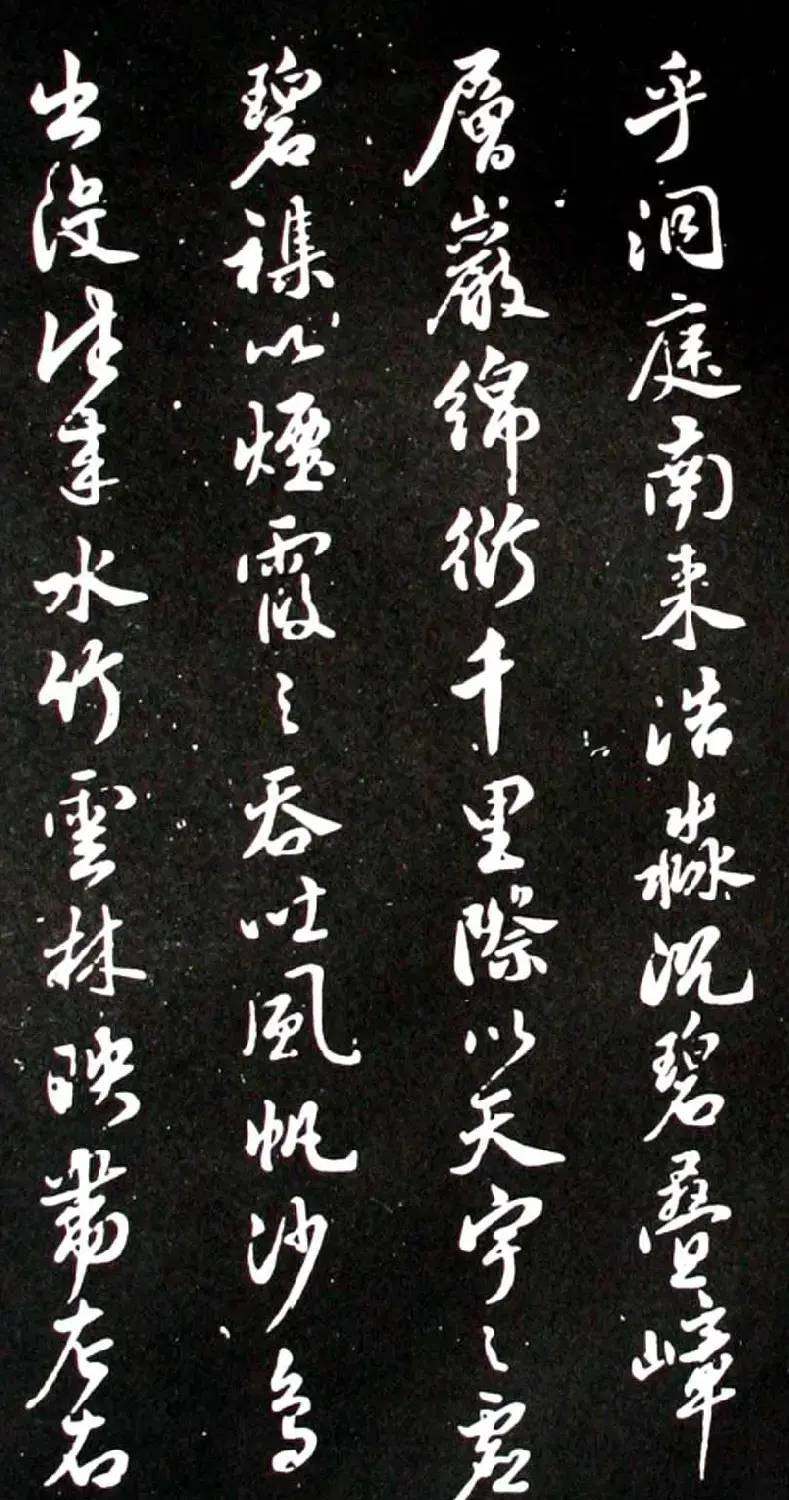 乎洞庭南来浩淼沉碧疊嶂
層巖綿衍千里際以天宇之虛
碧襍以煙霞之吞吐風帆沙鳥
出没往来水竹雲林映帶左右